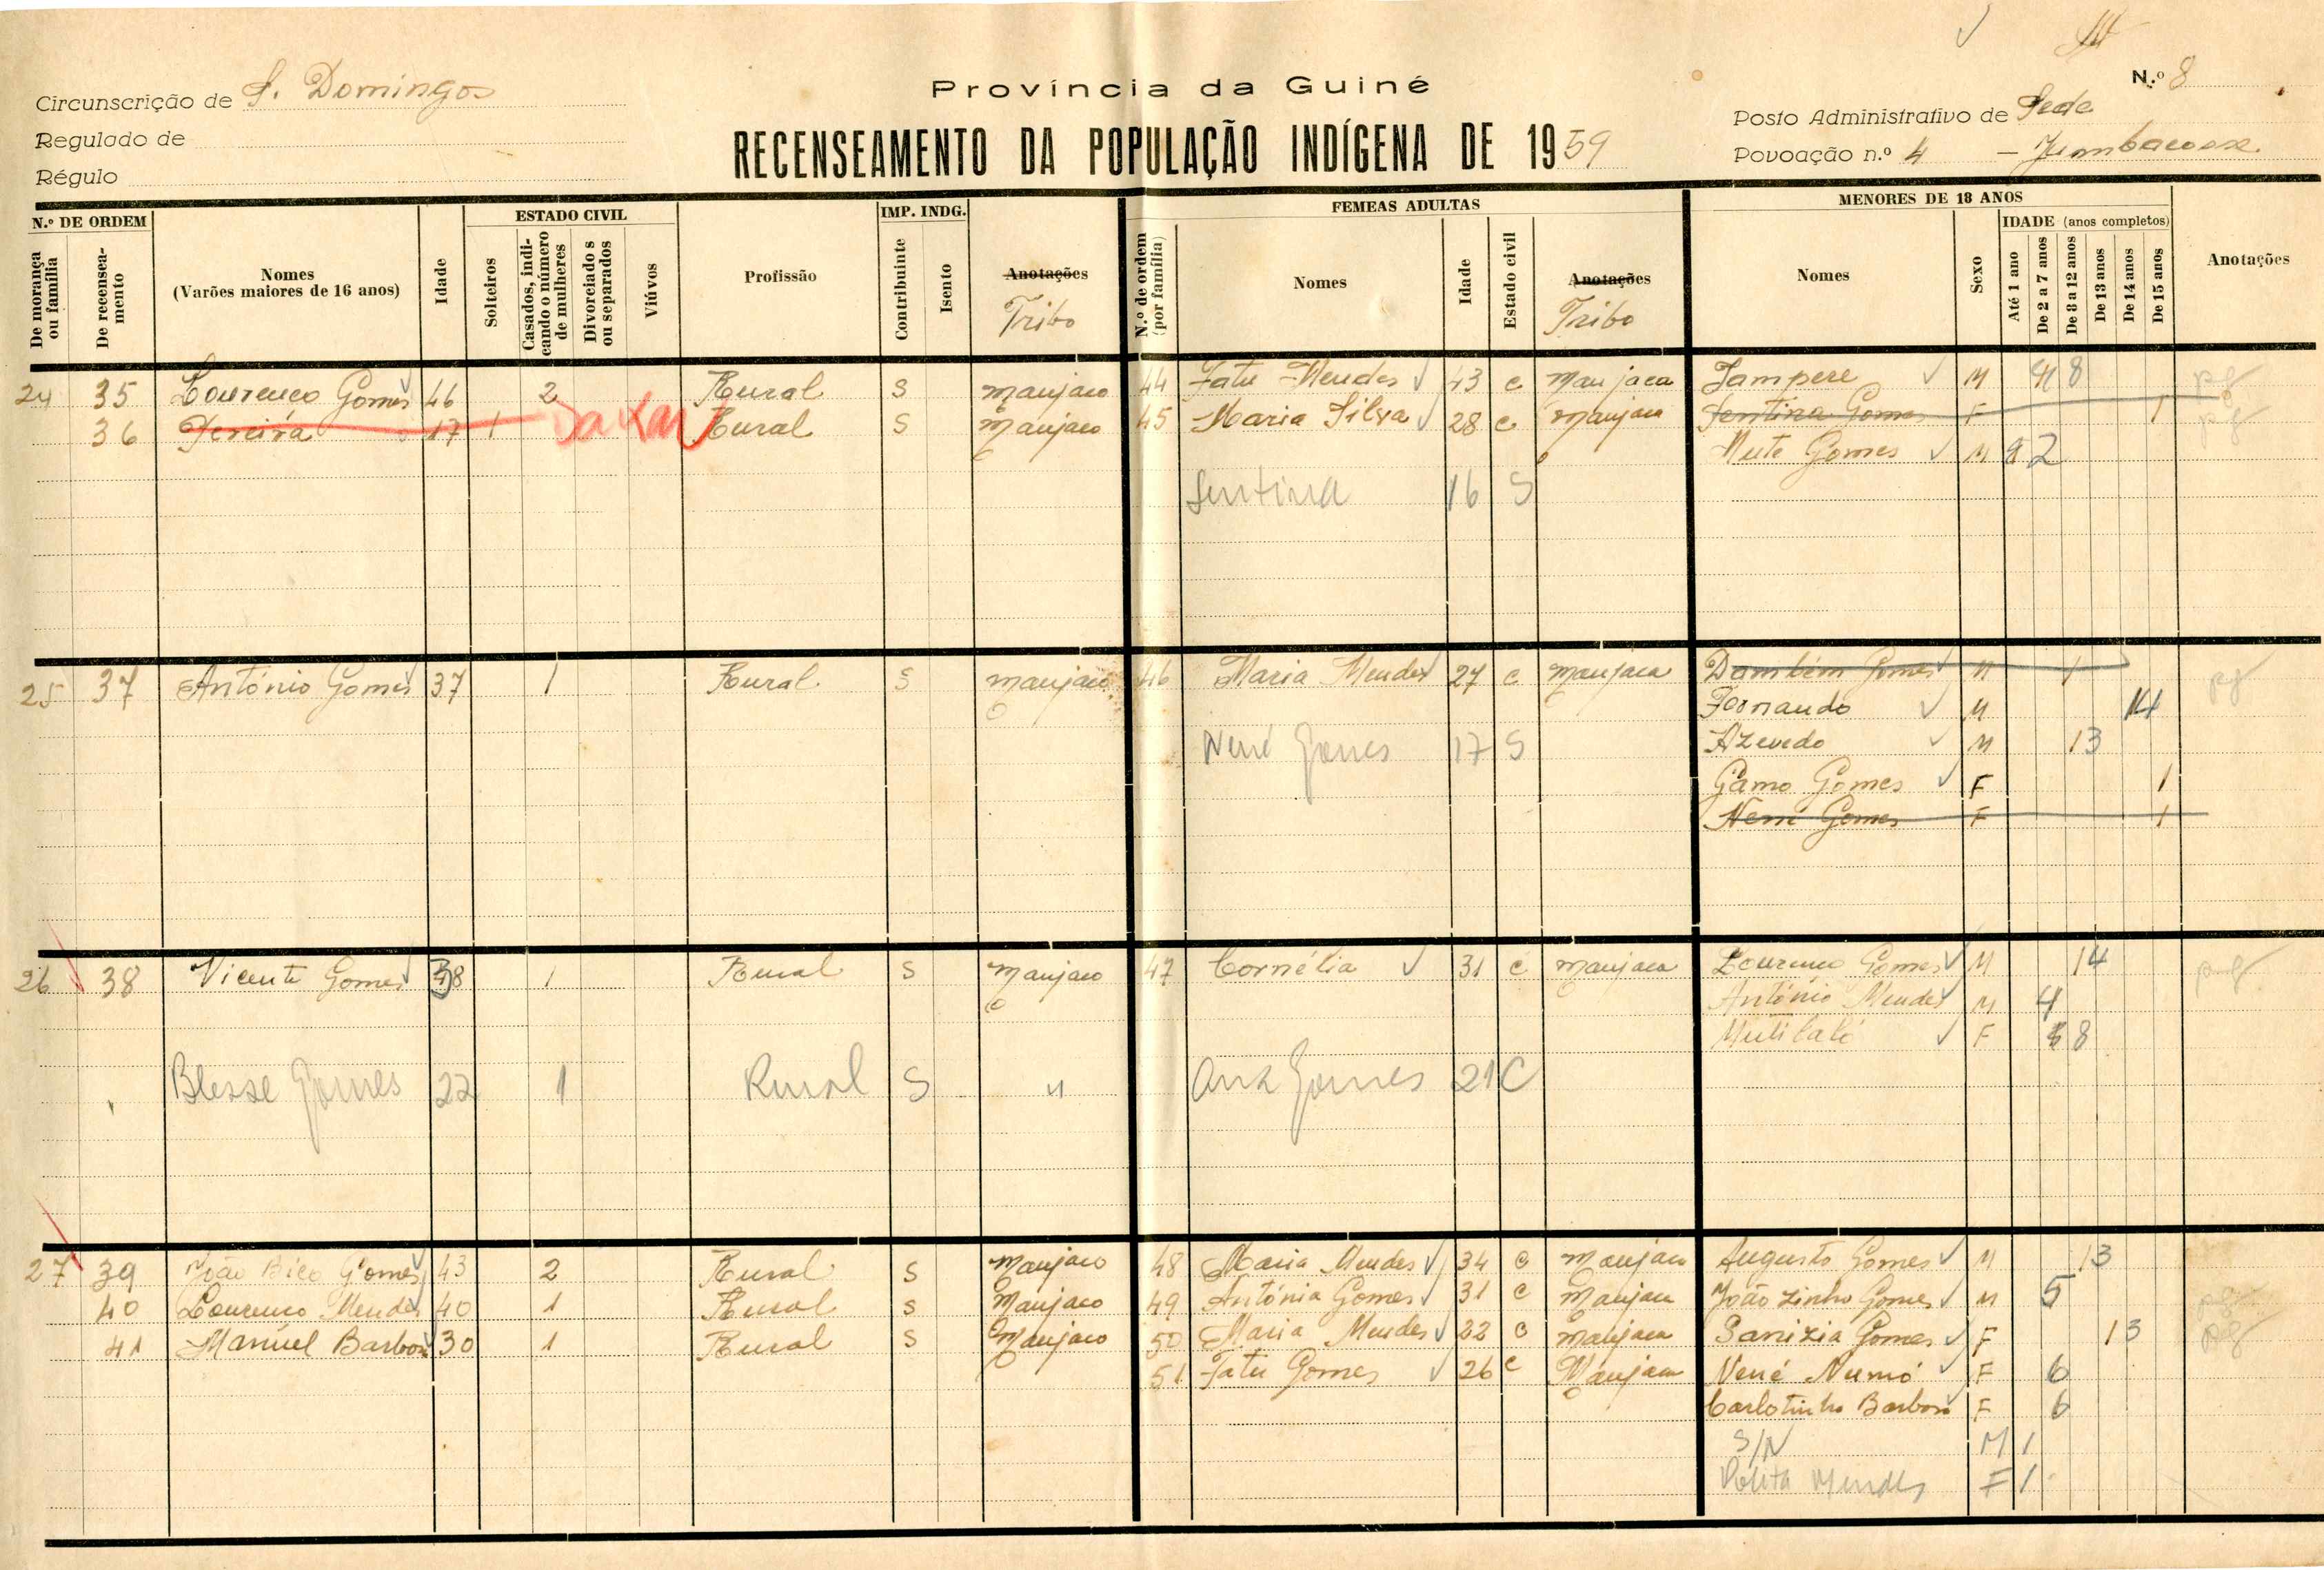 Circunscrição de S. Domingos
Regulado de
Régulo
Província da Guiné
RECENSEAMENTO DA POPULAÇÃO INDÍGENA DE 1959
N.º 8
Posto Administrativo de Sede
Povoação n.º 4 –
N.º DE ORDEM
De morança ou família
De recensea-mento
Nomes
(Varões maiores de 16 anos)
Idade
ESTADO CIVIL
Solteiros
Casados, indi-cando o número de mulheres
Divorciados ou separados
Viúvos
Profissão
IMP. INDG.
Contribuinte
Isento
Anotações
Tribo
FEMEAS ADULTAS
N.º de ordem (por família)
Nomes
Idade
Estado civil
Anotações
Tribo
MENORES DE 18 ANOS
Nomes
Sexo
IDADE (anos completos)
Até 1 ano
De 2 a 7 anos
De 8 a 12 anos
De 13 anos
De 14 anos
De 15 anos
Anotações
24 35 Lourenço Gomes 46 2 Rural S manjaco 44 Fatu Mendes 43 c manjaca Tampere M 8 pg
36 Pereira 17 1 Dakar Rural S manjaco 45 Maria Silva 28 c manjaca Sentina Gomes F 1 pg
Mute Gomes M 2
Sentina 16 S
25 37 António Gomes 37 1 Rural S manjaco 46 Maria Mendes 27 c manjaca Dambém Gomes M 1 pg
Fernando M 14
Nené Gomes 17 S Azevedo M 13
Gamo Gomes F 1
Nené Gomes F 1
26 38 Vicente Gomes 38 1 Rural S manjaco 47 Cornélia 31 c manjaca Lourenço Gomes M 14 pg
António Mendes M 4
F 8
Blesse Gomes 22 1 Rural S " Ana Gomes 21 C
27 39 João Bico Gomes 43 2 Rural S manjaco 48 Maria Mendes 34 c manjaca Augusto Gomes M 13
40 Lourenço Mendes 40 1 Rural S manjaco 49 Antónia Gomes 31 c manjaca Joãozinho Gomes M 5 pg
41 Manuel Barbosa 30 1 Rural S manjaco 50 Maria Mendes 22 c manjaca Gomes F 13 pg
51 Fatu Gomes 26 c manjaca Nené Numó F 6
Carlotinha Barbosa F 6
S/N M 1
Mendes F 1